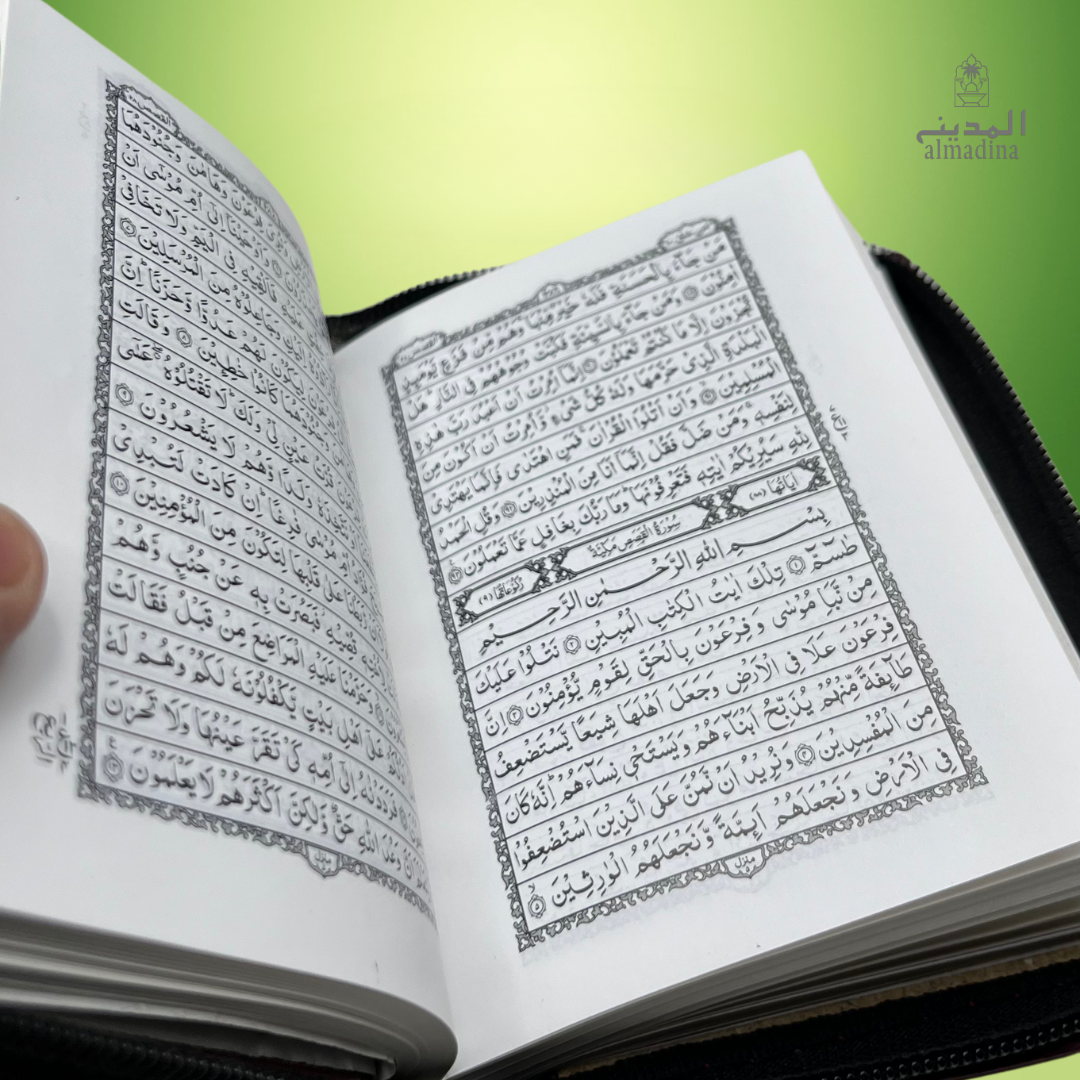 المدينى
almadina
مَنْ جَآءَ بِالْحَسَنَةِ فَلَهٗ خَيْرٌ مِّنْهَا وَهُمْ مِّنْ فَزَعٍ يَّوْمَئِذٍ
اٰمِنُوْنَ ۝ وَمَنْ جَآءَ بِالسَّيِّئَةِ فَكُبَّتْ وُجُوْهُهُمْ فِى النَّارِ هَلْ
تُجْزَوْنَ اِلَّا مَا كُنْتُمْ تَعْمَلُوْنَ ۝ اِنَّمَآ اُمِرْتُ اَنْ اَعْبُدَ رَبَّ هٰذِهِ
الْبَلْدَةِ الَّذِىْ حَرَّمَهَا وَلَهٗ كُلُّ شَىْءٍ وَّاُمِرْتُ اَنْ اَكُوْنَ مِنَ
الْمُسْلِمِيْنَ ۝ وَاَنْ اَتْلُوَا الْقُرْاٰنَ فَمَنِ اهْتَدٰى فَاِنَّمَا يَهْتَدِىْ
لِنَفْسِهٖ وَمَنْ ضَلَّ فَقُلْ اِنَّمَآ اَنَا مِنَ الْمُنْذِرِيْنَ ۝ وَقُلِ الْحَمْدُ
لِلّٰهِ سَيُرِيْكُمْ اٰيٰتِهٖ فَتَعْرِفُوْنَهَا وَمَا رَبُّكَ بِغَافِلٍ عَمَّا تَعْمَلُوْنَ ۝
اٰيَاتُهَا (٨٨) سُوْرَةُ الْقَصَصِ مَكِّيَّةٌ رُكُوْعَاتُهَا (٩)
بِسْمِ اللّٰهِ الرَّحْمٰنِ الرَّحِيْمِ
طٰسٓمّٓ ۝١ تِلْكَ اٰيٰتُ الْكِتٰبِ الْمُبِيْنِ ۝٢ نَتْلُوْا عَلَيْكَ
مِنْ نَّبَاِ مُوْسٰى وَفِرْعَوْنَ بِالْحَقِّ لِقَوْمٍ يُّؤْمِنُوْنَ ۝٣ اِنَّ
فِرْعَوْنَ عَلَا فِى الْاَرْضِ وَجَعَلَ اَهْلَهَا شِيَعًا يَّسْتَضْعِفُ
طَآئِفَةً مِّنْهُمْ يُذَبِّحُ اَبْنَآءَهُمْ وَيَسْتَحْىٖ نِسَآءَهُمْ اِنَّهٗ كَانَ
مِنَ الْمُفْسِدِيْنَ ۝٤ وَنُرِيْدُ اَنْ نَّمُنَّ عَلَى الَّذِيْنَ اسْتُضْعِفُوْا
فِى الْاَرْضِ وَنَجْعَلَهُمْ اَئِمَّةً وَّنَجْعَلَهُمُ الْوٰرِثِيْنَ ۝٥
منزل ٥
القصص ٢٨
وَنُرِىَ فِرْعَوْنَ وَهَامٰنَ وَجُنُوْدَهُمَا
وَاَوْحَيْنَآ اِلٰٓى اُمِّ مُوْسٰٓى اَنْ
عَلَيْهِ فَاَلْقِيْهِ فِى الْيَمِّ وَلَا تَخَافِىْ
اِلَيْكِ وَجَاعِلُوْهُ مِنَ الْمُرْسَلِيْنَ ۝
فِرْعَوْنَ لِيَكُوْنَ لَهُمْ عَدُوًّا وَّحَزَنًا اِنَّ
وَجُنُوْدَهُمَا كَانُوْا خٰطِئِيْنَ ۝ وَقَالَتِ
قُرَّتُ عَيْنٍ لِّىْ وَلَكَ لَا تَقْتُلُوْهُ عَسٰٓى
نَتَّخِذَهٗ وَلَدًا وَّهُمْ لَا يَشْعُرُوْنَ ۝٩
اُمِّ مُوْسٰى فٰرِغًا اِنْ كَادَتْ لَتُبْدِىْ
اَنْ رَّبَطْنَا عَلٰى قَلْبِهَا لِتَكُوْنَ مِنَ الْمُؤْمِنِيْنَ ۝١٠
قُصِّيْهِ فَبَصُرَتْ بِهٖ عَنْ جُنُبٍ وَّهُمْ
وَحَرَّمْنَا عَلَيْهِ الْمَرَاضِعَ مِنْ قَبْلُ فَقَالَتْ
عَلٰٓى اَهْلِ بَيْتٍ يَّكْفُلُوْنَهٗ لَكُمْ وَهُمْ لَهٗ
فَرَدَدْنٰهُ اِلٰٓى اُمِّهٖ كَىْ تَقَرَّ عَيْنُهَا وَلَا تَحْزَنَ
اَنَّ وَعْدَ اللّٰهِ حَقٌّ وَّلٰكِنَّ اَكْثَرَهُمْ لَا يَعْلَمُوْنَ ۝١٣
منزل